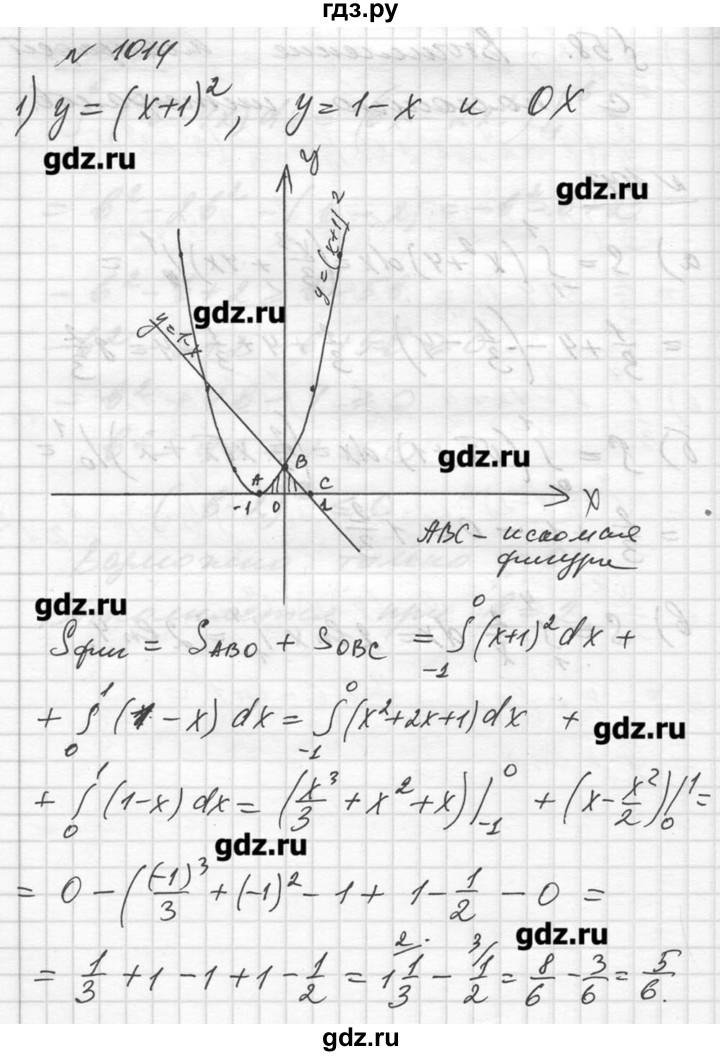 гдз.ру
N 1014
1) y = (x+1)², y = 1-x и OX
gdz.ru
gdz.ru
y
y = (x+1)²
gdz.ru
y = 1-x
gdz.ru
A B C
-1 0 1 x
ABC - искомая
фигура
gdz.ru
Sфиг = S_ABO + S_OBC = ∫_{-1}^{0} (x+1)² dx +
+ ∫_{0}^{1} (1-x) dx = ∫_{-1}^{0} (x²+2x+1) dx +
gdz.ru
+ ∫_{0}^{1} (1-x) dx = (x³/3 + x² + x) |_{-1}^{0} + (x - x²/2) |_{0}^{1} =
gdz.ru
= 0 - ((-1)³/3 + (-1)² - 1 + 1 - 1/2 - 0 =
gdz.ru
= 1/3 + 1 - 1 + 1 - 1/2 = 1 1/3 2/ - 1/2 3/ = 8/6 - 3/6 = 5/6.
gdz.ru